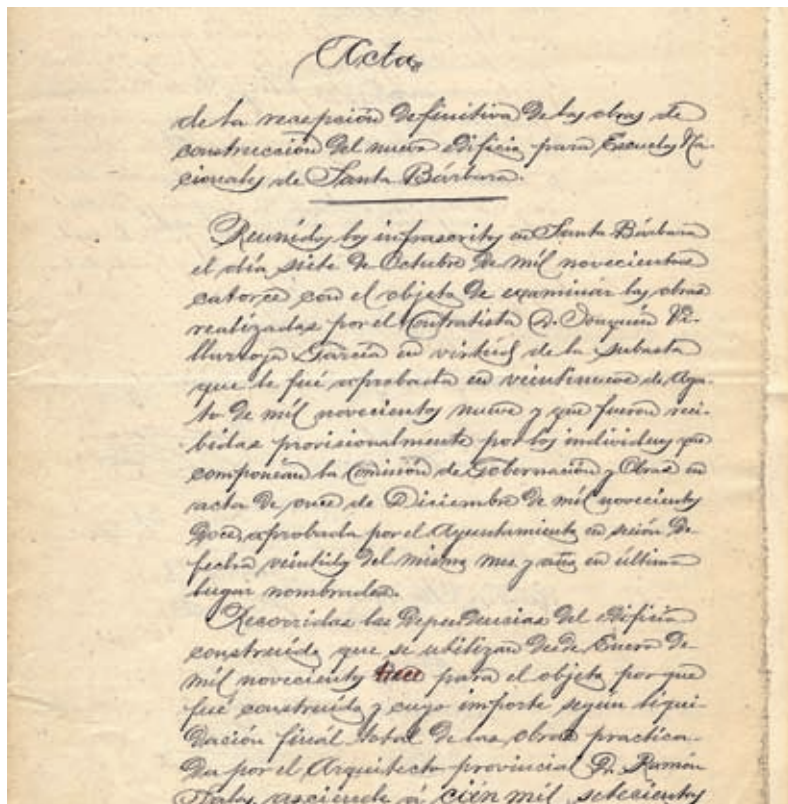 Acta
de la recepción definitiva de las obras de
construcción del nuevo edificio para Escuelas Na-
cionales de Santa Bárbara.
Reunidos los infrascritos en Santa Bárbara
el día siete de Octubre de mil novecientos
catorce con el objeto de examinar las obras
realizadas por el Contratista D. Joaquín Vi-
llarroya García en virtud de la subasta
que le fué aprobada en veintinueve de Agos-
to de mil novecientos nueve y que fueron reci-
bidas provisionalmente por los individuos que
componían la Comisión de Gobernación y Obras en
acta de once de Diciembre de mil novecientos
doce, aprobada por el Ayuntamiento en sesión de
fecha veintidos del mismo mes y año en último
lugar nombrados.
Recorridas las dependencias del edificio
construido que se utilizan desde Enero de
mil novecientos trece para el objeto por que
fué construido y cuyo importe según liqui-
dación final total de las obras practica-
da por el Arquitecto provincial D. Ramón
Salas, asciende á cién mil setecientos